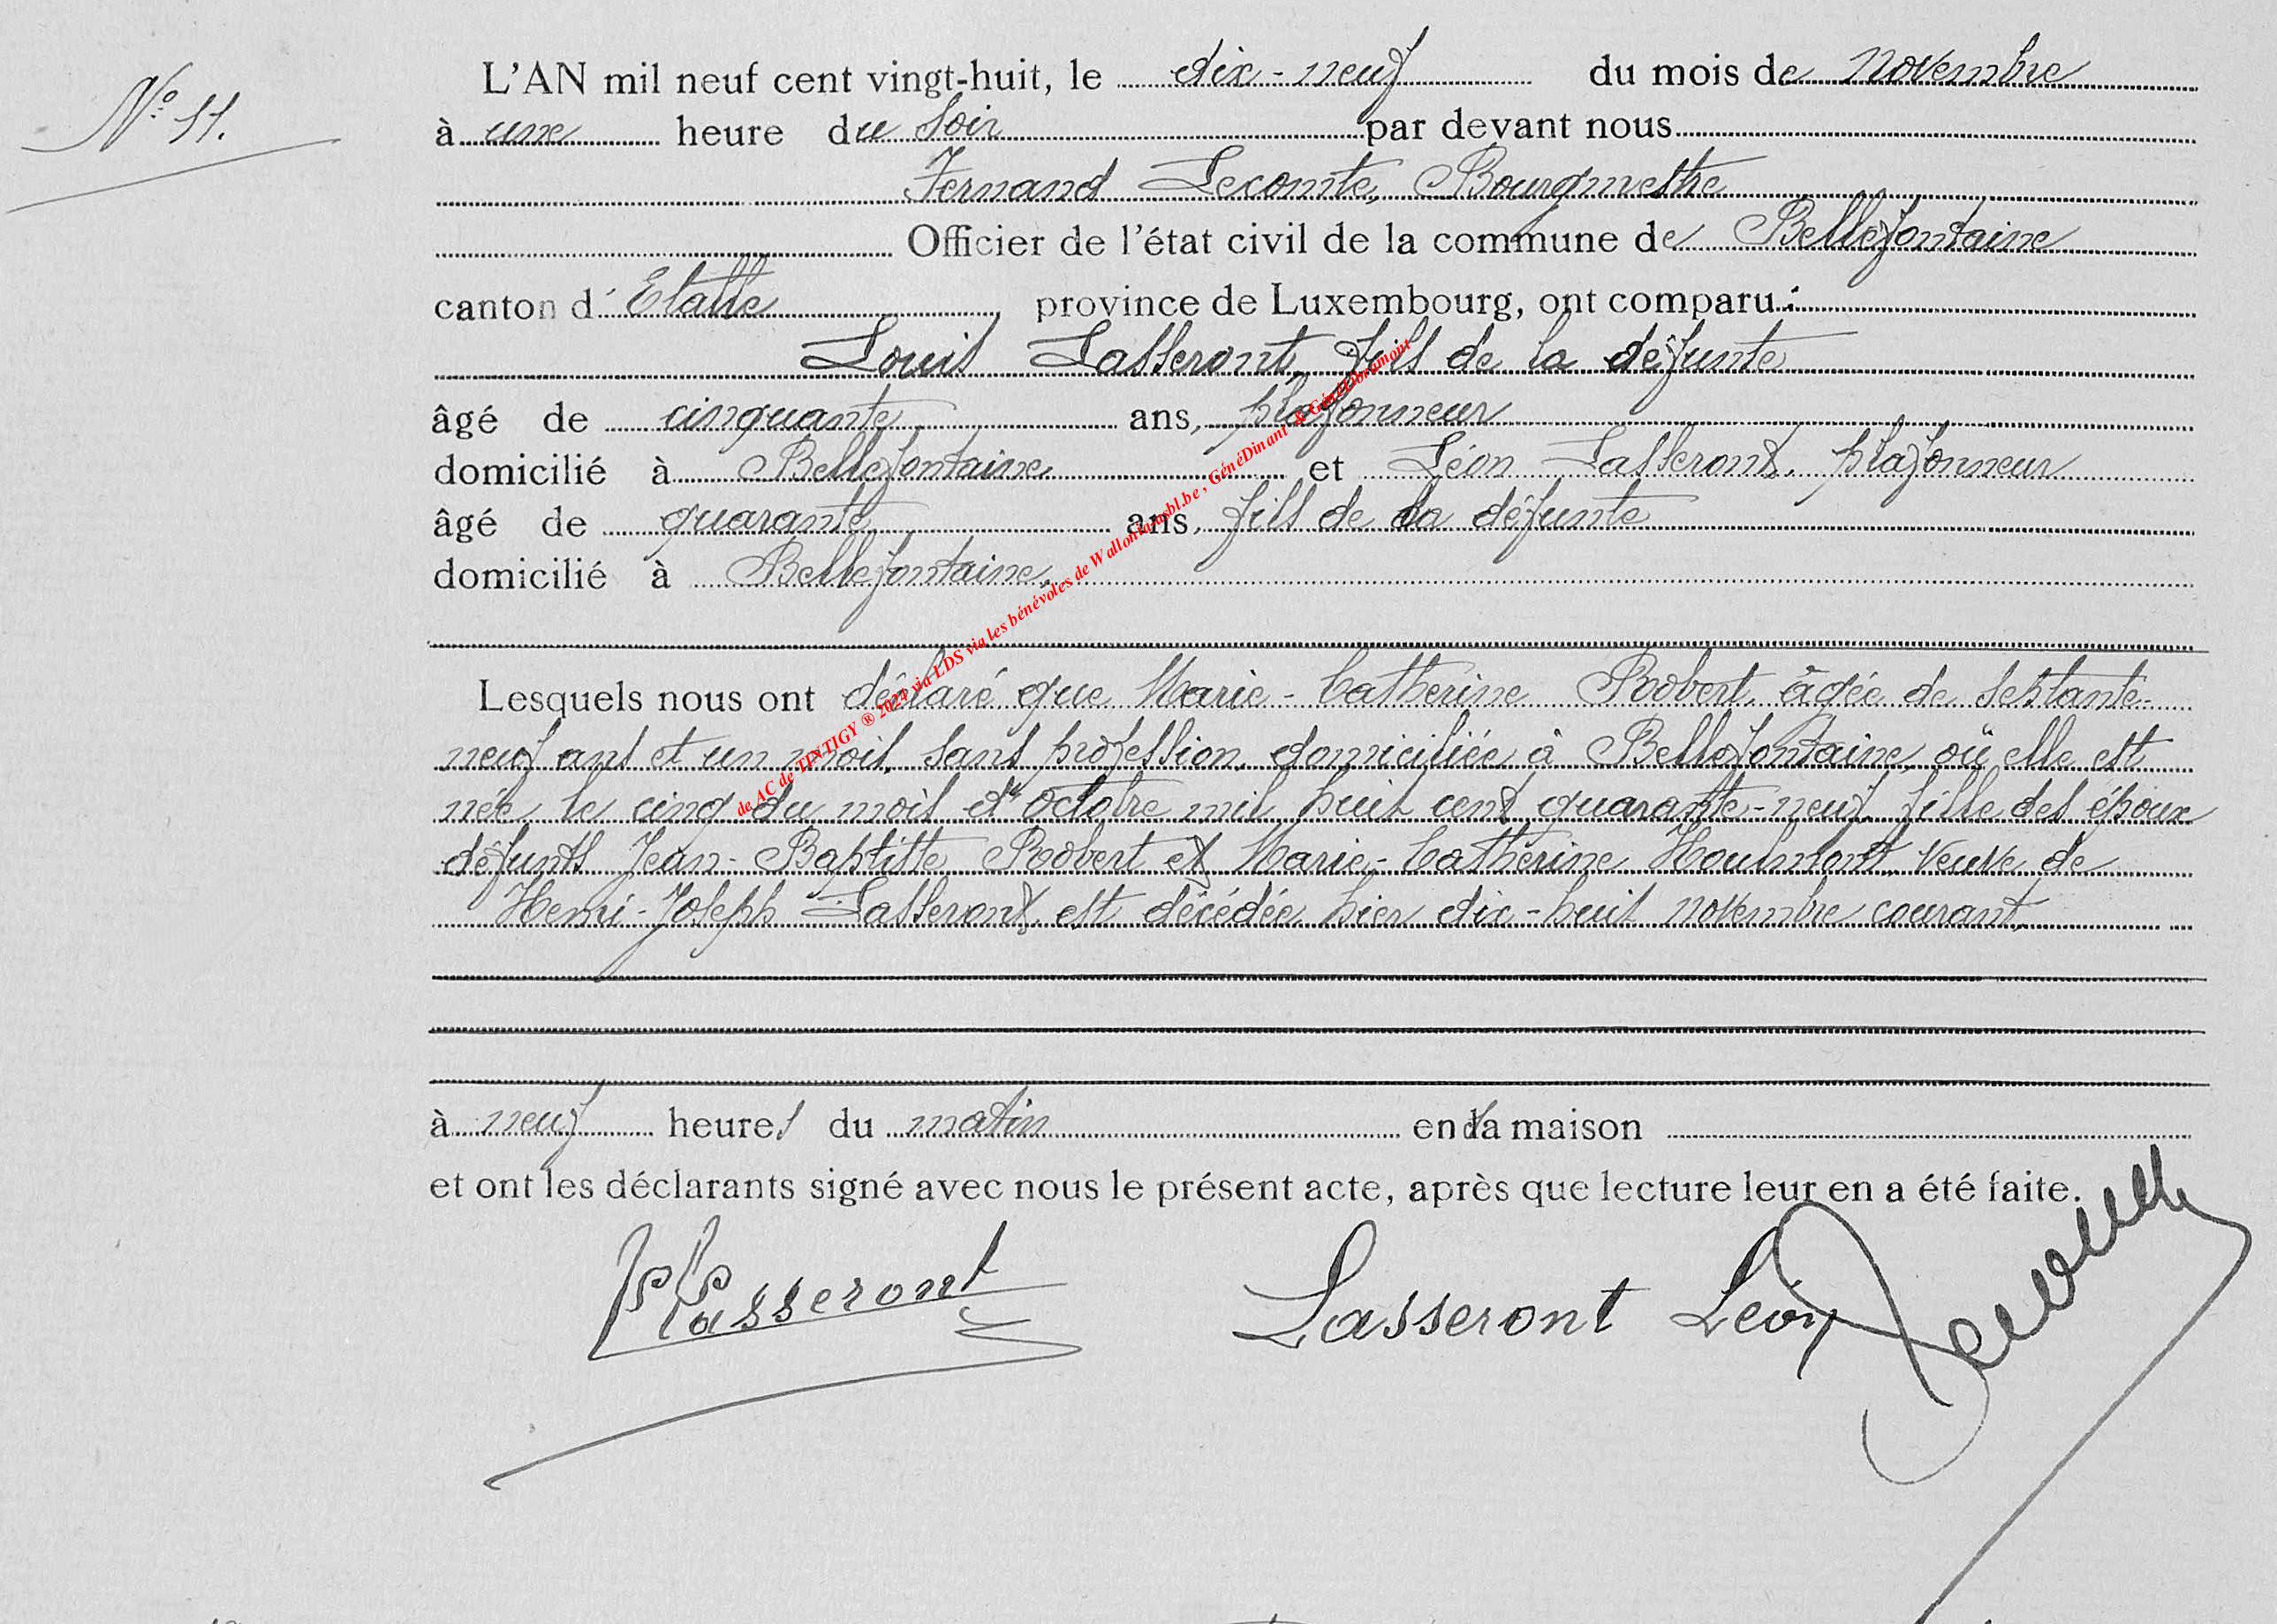 N° 11.
L'AN mil neuf cent vingt-huit, le dix-neuf du mois de novembre
à une heure du soir par devant nous
Fernand Lecomte, Bourgmestre
Officier de l'état civil de la commune de Bellefontaine
canton d' Etalle province de Luxembourg, ont comparu :
Louis Lasseront, fils de la défunte
âgé de cinquante ans, plafonneur
domicilié à Bellefontaine et Léon Lasseront, plafonneur
âgé de quarante ans, fils de la défunte
domicilié à Bellefontaine,
Lesquels nous ont déclaré que Marie-Catherine Roobert, âgée de septante-
neuf ans et un mois, sans profession, domiciliée à Bellefontaine, où elle est
née le cinq du mois d'octobre mil huit cent quarante-neuf, fille des époux
défunts Jean-Baptiste Roobert et Marie-Catherine Houlmont, veuve de
Henri-Joseph Lasseront, est décédée hier dix-huit novembre courant,
à neuf heures du matin en sa maison
et ont les déclarants signé avec nous le présent acte, après que lecture leur en a été faite.
Lasseront Lasseront Léon
de AC de TINTIGY ® 2024 via LDS via les bénévoles de Wallonia asbl.be , GénéDinant & GénéLibramont